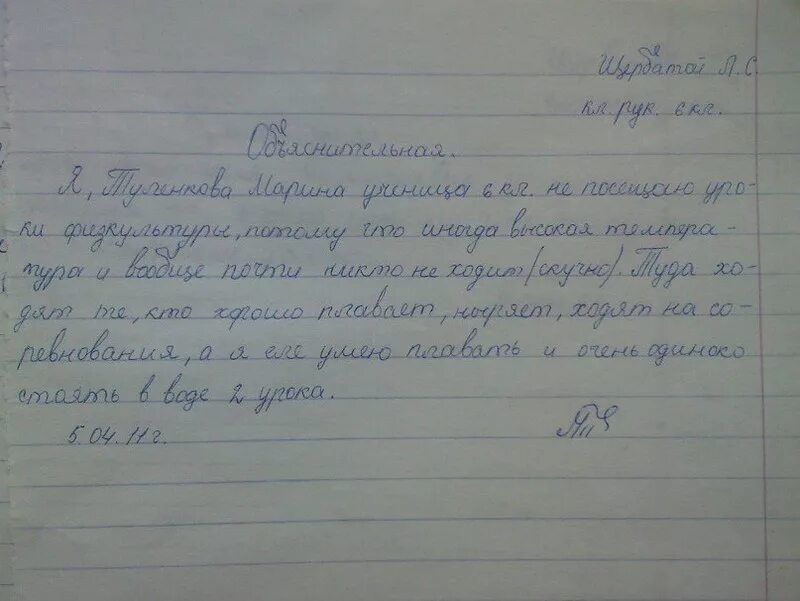 Щербатой Л.С.
кл. рук. 6 кл.
Объяснительная.
Я, Тученкова Марина ученица 6 кл. не посещаю уро-
ки физкультуры, потому что иногда высокая темпера-
тура и вообще почти никто не ходит (скучно). Туда хо-
дят те, кто хорошо плавает, ныряет, ходят на со-
ревнования, а я еле умею плавать и очень одиноко
стоять в воде 2 урока.
5.04.11 г.